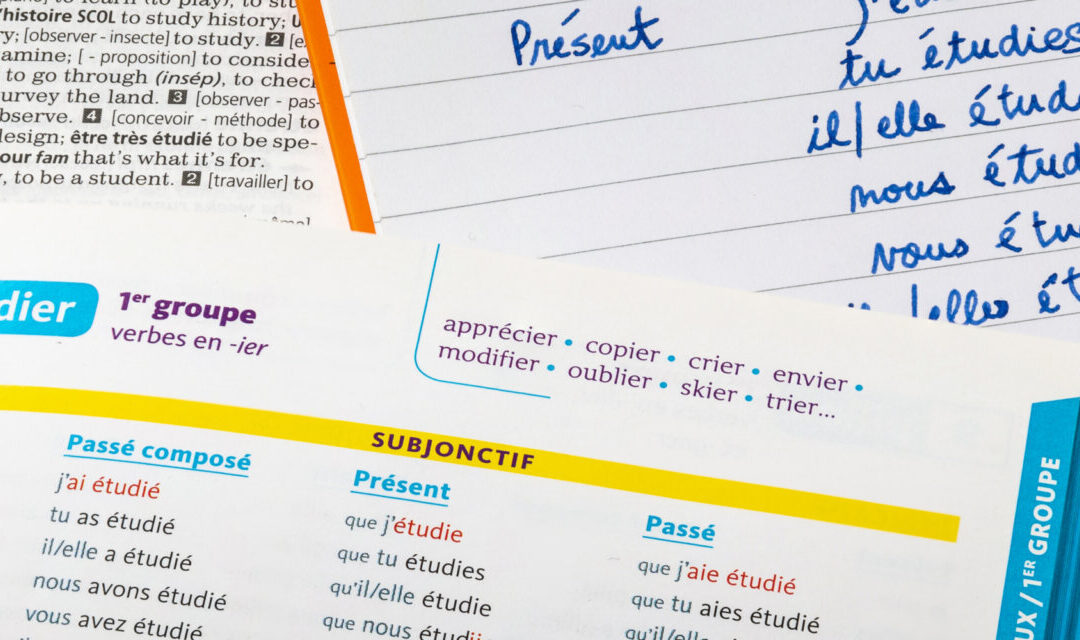 to learn (to play), to stu
/histoire SCOL to study history;
ry; [observer - insecte] to study. 2
amine; [ - proposition] to conside
to go through (insép), to chec
urvey the land. 3 [observer - pas-
bserve. 4 [concevoir - méthode] to
design; être très étudié to be spe-
our fam that's what it's for.
, to be a student. 2 [travailler] to
Présent
tu étudies
il/elle étud
nous étud
vous étu
/elles ét
dier
1er groupe
verbes en -ier
apprécier • copier • crier • envier •
modifier • oublier • skier • trier...
SUBJONCTIF
Passé composé
j'ai étudié
tu as étudié
il/elle a étudié
nous avons étudié
vous avez étudié
Présent
que j'étudie
que tu étudies
qu'il/elle étudie
que nous étudii
Passé
que j'aie étudié
que tu aies étudié
qu'il/elle
UX / 1ER GROUPE